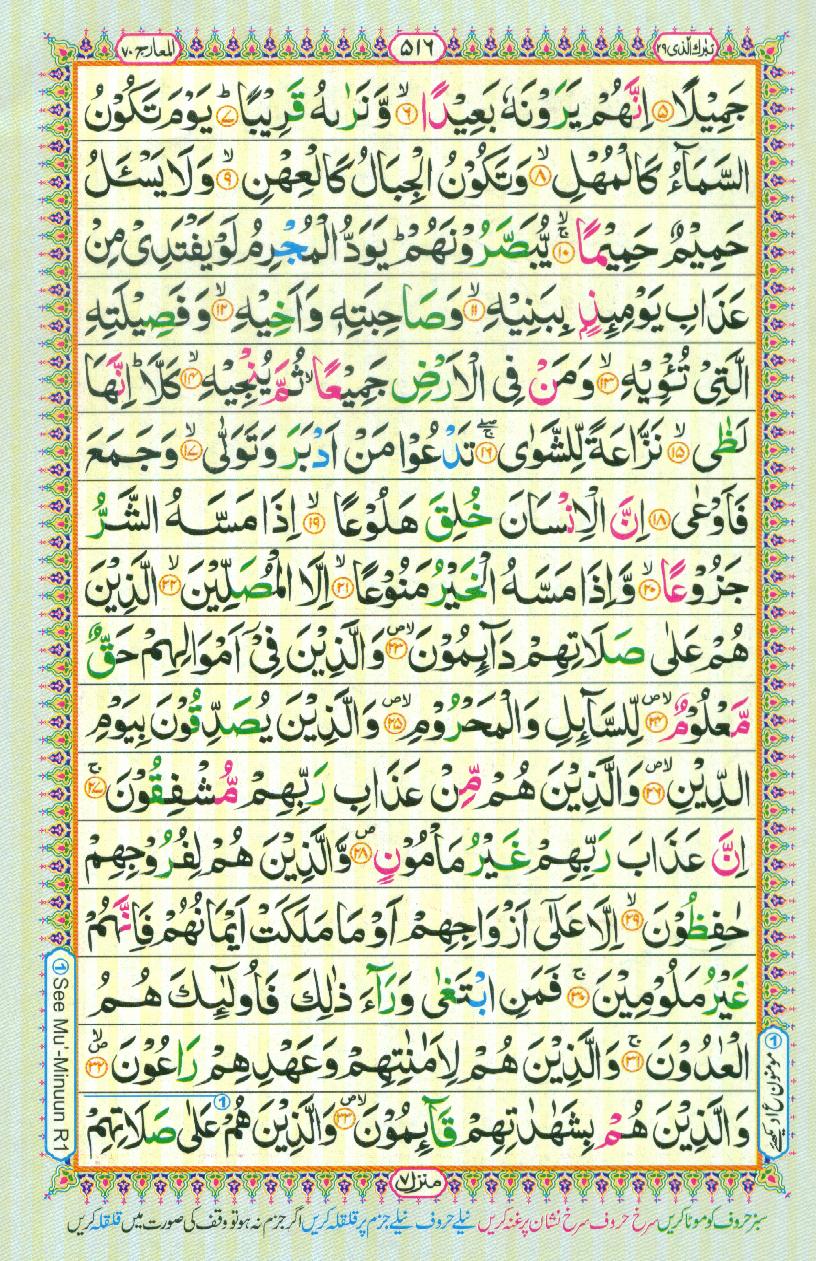 تبٰرك الذی ۲۹
۵۱۶
المعارج ۷۰
جَمِيْلًا ۵ اِنَّهُمْ يَرَوْنَهٗ بَعِيْدًا ۙ۶ وَّ نَرٰىهُ قَرِيْبًا ؕ۷ يَوْمَ تَكُوْنُ
السَّمَآءُ كَالْمُهْلِ ۙ۸ وَتَكُوْنُ الْجِبَالُ كَالْعِهْنِ ۙ۹ وَلَا يَسْـَٔلُ
حَمِيْمٌ حَمِيْمًا ۚۖ۱۰ يُّبَصَّرُوْنَهُمْ ؕ يَوَدُّ الْمُجْرِمُ لَوْ يَفْتَدِىْ مِنْ
عَذَابِ يَوْمِئِذٍۭ بِبَنِيْهِ ۙ۱۱ وَصَاحِبَتِهٖ وَاَخِيْهِ ۙ۱۲ وَفَصِيْلَتِهِ
الَّتِىْ تُـْٔوِيْهِ ۙ۱۳ وَمَنْ فِى الْاَرْضِ جَمِيْعًا ۙ ثُمَّ يُنْجِيْهِ ۙ۱۴ كَلَّا ؕ اِنَّهَا
لَظٰى ۙ۱۵ نَزَّاعَةً لِّلشَّوٰى ۚۖ۱۶ تَدْعُوْا مَنْ اَدْبَرَ وَتَوَلّٰى ۙ۱۷ وَجَمَعَ
فَاَوْعٰى ۱۸ اِنَّ الْاِنْسَانَ خُلِقَ هَلُوْعًا ۙ۱۹ اِذَا مَسَّهُ الشَّرُّ
جَزُوْعًا ۙ۲۰ وَّاِذَا مَسَّهُ الْخَيْرُ مَنُوْعًا ۙ۲۱ اِلَّا الْمُصَلِّيْنَ ۙ۲۲ الَّذِيْنَ
هُمْ عَلٰى صَلَاتِهِمْ دَآئِمُوْنَ ۪ۙ۲۳ وَالَّذِيْنَ فِىْٓ اَمْوَالِهِمْ حَقٌّ
مَّعْلُوْمٌ ۪ۙ۲۴ لِّلسَّآئِلِ وَالْمَحْرُوْمِ ۪ۙ۲۵ وَالَّذِيْنَ يُصَدِّقُوْنَ بِيَوْمِ
الدِّيْنِ ۪ۙ۲۶ وَالَّذِيْنَ هُمْ مِّنْ عَذَابِ رَبِّهِمْ مُّشْفِقُوْنَ ۚ۲۷
اِنَّ عَذَابَ رَبِّهِمْ غَيْرُ مَاْمُوْنٍ ۪۲۸ وَّالَّذِيْنَ هُمْ لِفُرُوْجِهِمْ
حٰفِظُوْنَ ۙ۲۹ اِلَّا عَلٰٓى اَزْوَاجِهِمْ اَوْ مَا مَلَكَتْ اَيْمَانُهُمْ فَاِنَّهُمْ
غَيْرُ مَلُوْمِيْنَ ۚ۳۰ فَمَنِ ابْتَغٰى وَرَآءَ ذٰلِكَ فَاُولٰٓئِكَ هُمُ
الْعٰدُوْنَ ۚ۳۱ وَالَّذِيْنَ هُمْ لِاَمٰنٰتِهِمْ وَعَهْدِهِمْ رَاعُوْنَ ۪ۙ۳۲
وَالَّذِيْنَ هُمْ بِشَهٰدٰتِهِمْ قَآئِمُوْنَ ۪ۙ۳۳ وَالَّذِيْنَ هُمْ عَلٰى صَلَاتِهِمْ
① See Mu'-Minuun R1
① مومنون ع ۱ دیکھئے
منزل ۷
سبز حروف کو موٹا کریں سرخ حروف سرخ نشان پر غنہ کریں نیلے حروف نیلے جزم پر قلقلہ کریں اگر جزم نہ ہو تو وقف کی صورت میں قلقلہ کریں